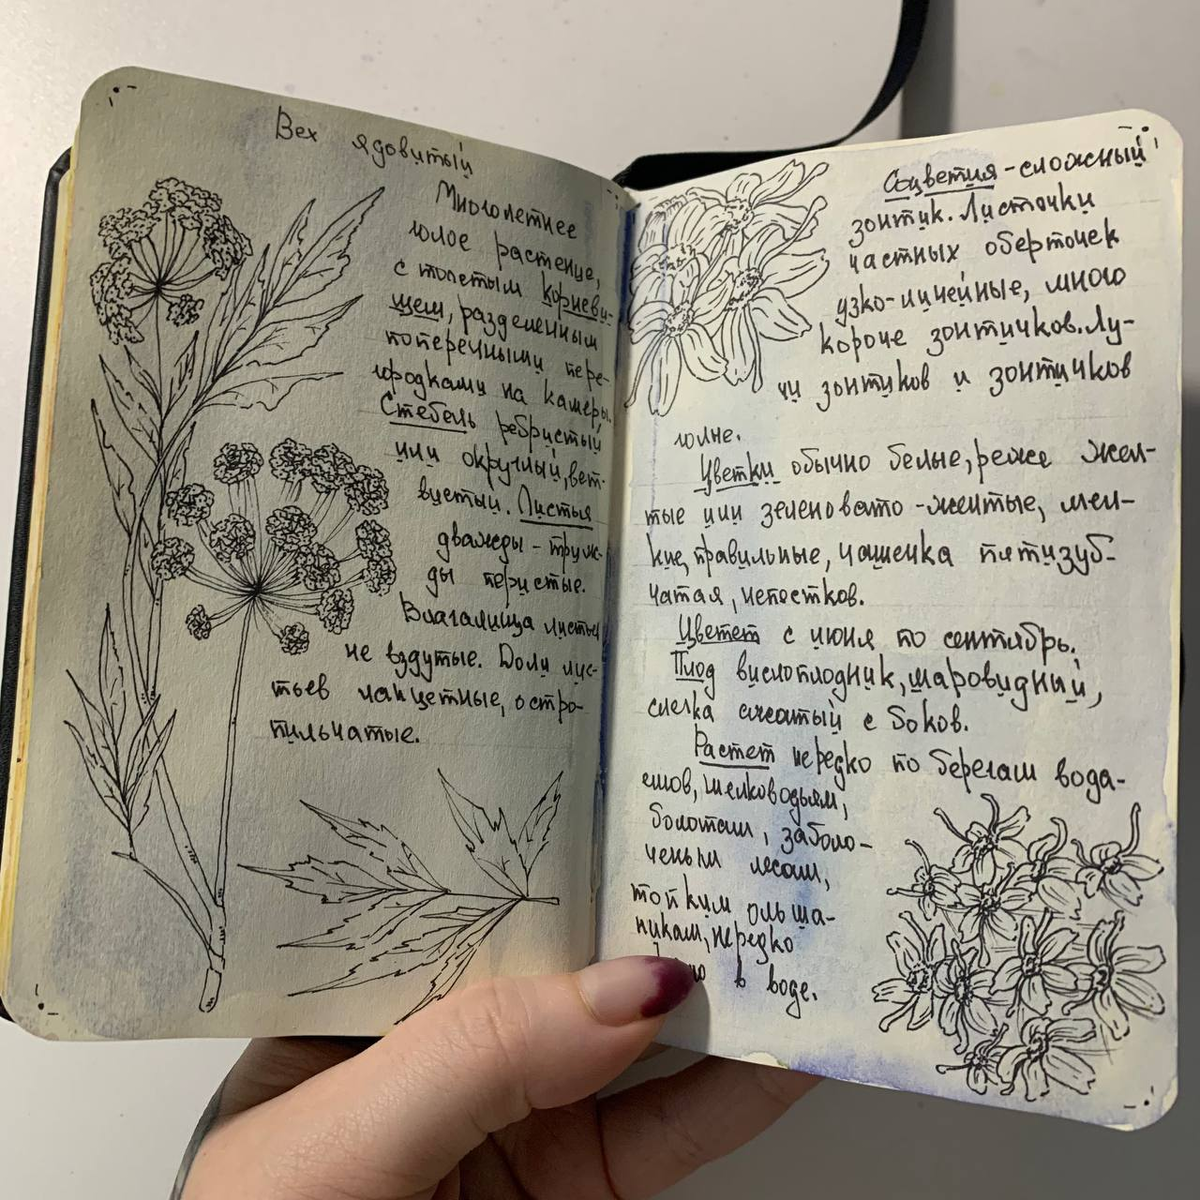 Вех ядовитый
Многолетнее
голое растение,
с толстым корневи-
щем, разделенным
поперечными пере-
городками на камеры.
Стебель ребристый
или округлый, вет-
вистый. Листья
дважды - триж-
ды перистые.
Влагалища листьев
не вздутые. Доли лис-
тьев ланцетные, остро-
пильчатые.
Соцветия - сложный
зонтик. Листочки
частных оберточек
узко-линейные, много
короче зонтичков. Лу-
чи зонтиков и зонтичков
голые.
Цветки обычно белые, реже жел-
тые или зеленовато-желтые, мел-
кие, правильные, чашечка пятизуб-
чатая, лепестков.
Цветет с июня по сентябрь.
Плод вислоплодник, шаровидный,
слегка сжатый с боков.
Растет нередко по берегам водо-
емов, мелководьям,
болотам, заболо-
ченым лесам,
топким ольша-
никам, нередко
в воде.